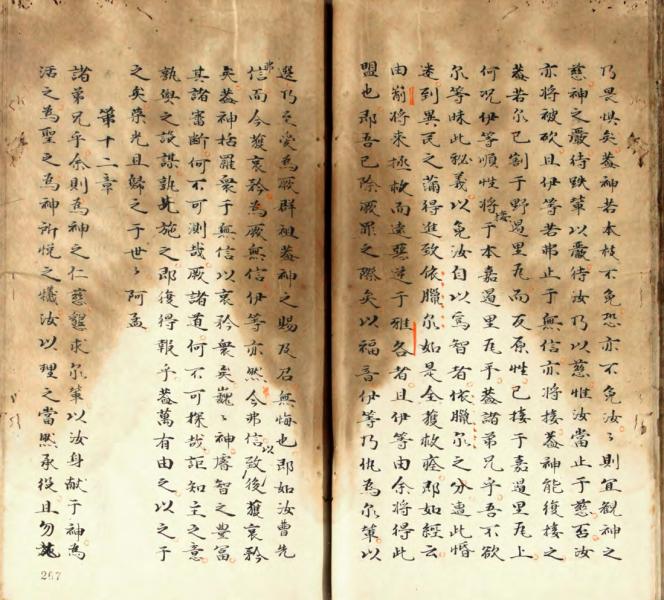 乃畏惧矣蓋神若本枝不免恐亦不免汝〻則宜觀神之
慈神之嚴待跌輩以嚴待汝乃以慈惟汝當止于慈否汝
亦將被砍且伊等若弗止于無信亦將接蓋神能復接之
蓋若尔已割于野過里瓦而反原性已接于嘉過里瓦上
何况伊等順性將接于本嘉過里瓦乎蓋諸弟兄乎吾不欲
尔等昧此秘義以免汝自以寫智者依臘尔之分遭此惛
迷到異民之滿得進致依臘尔如是全獲救痊即如經云
由崩將來拯救而遠惡逆于雅各者且伊等由余將得此
盟也即吾已除厥罪之際矣以福音伊等乃仇為尔輩以
選乃至愛為厥群祖蓋神之賜及召無悔也即如汝曹先
弗信而今獲哀矜為厥無信伊等亦然今弗信以致後獲哀矜
矣蓋神括羅衆于無信以哀矜衆矣巍〻神睿智之豊富
其諸審斷何不可測哉厥諸道何不可探哉詎知主之意
孰與之設謀孰先施之即復得報乎蓋萬有由之以之于
之矣榮光且歸之于世〻阿孟
第十二章
諸弟兄乎余則為神之仁慈懇求尔輩以汝身献于神為
活之為聖之為神所悅之犧汝以理之當然承從且勿蓰
267